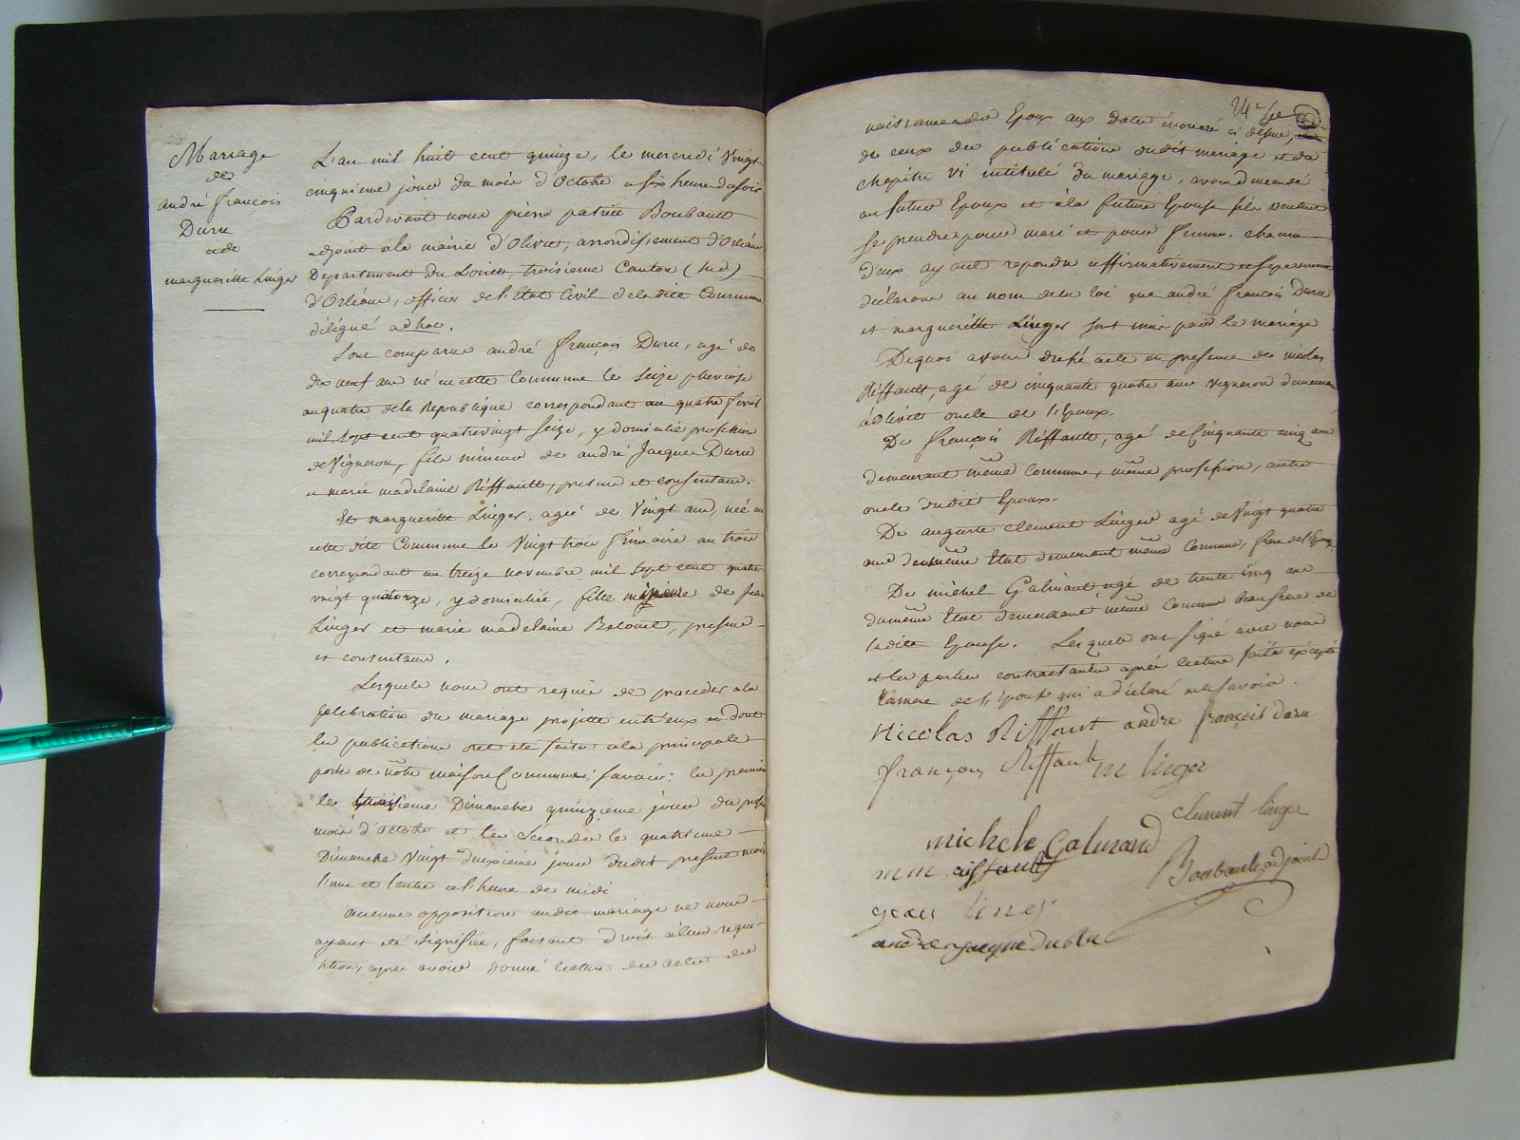 Mariage
de
andré françois
Duru
et de
margueritte Linger
L'an mil huit cent quinze, le mercredi Vingt
cinquieme jour du mois d'Octobre a six heures du soir
Pardevant nous pierre patrice Boubault
adjoint a la mairie d'Olivet, arrondissement d'Orléans
Departement du Loiret, troisieme Canton (sud)
d'Orléans, officier de l'Etat Civil de la dite Commune
délégué ad hoc.
Sont comparus andré françois Duru, agé de
dix neuf ans né en cette Commune le seize pluviose
an quatre de la Republique correspondant au quatre fevrier
mil sept cent quatrevingt seize, y domicilié profession
de Vigneron, fils mineur de andré Jacques Duru
et marie madelaine Riffault, present et consentant.
Et margueritte Linger, agée de Vingt ans, née en
cette dite Commune le Vingt trois frimaire an trois
correspondant au treize novembre mil sept cent quatre
vingt quatorze, y domiciliée, fille mineure de jean
Linger et marie madelaine present
et consentans.
Lesquels nous ont requis de proceder a la
celebration du mariage projetté entr'eux et dont
les publications ont été faites a la principale
porte de notre maison Commune; savoir: la premiere
le troisieme Dimanche quinzieme jour du present
mois d'octobre et la seconde le quatrieme
Dimanche Vingt deuxieme jour dudit present mois
l'une et l'autre a l'heure de midi
aucune opposition audit mariage ne nous
ayant été signifiée, faisant droit à leur requi-
sition, après avoir donné lecture des actes de
naissance des Epoux aux dates énoncés ci dessus,
de ceux des publications dudit mariage et du
chapitre VI intitulé du mariage, avons demandé
au futur Epoux et à la future Epouse s'ils veulent
se prendre pour mari et pour femme. chacun
d'eux ayant repondu affirmativement et separement
déclarons au nom de la loi que andré françois Duru
et margueritte Linger sont unis par le mariage
De quoi avons dressé acte en presence de nicolas
Riffault, agé de cinquante quatre ans vigneron demeurant
à Olivet oncle de l'Epoux.
De françois Riffault, agé de Cinquante cinq ans
demeurant même Commune, même profession, autre
oncle dudit Epoux.
De auguste clement Linger agé de Vingt quatre
ans de même Etat demeurant même Commune, frere de l'Epouse
De michel Galmard agé de trente cinq ans
du même Etat demeurant même Commune beau frere de
ladite Epouse. Lesquels ont signé avec nous
et les parties contractantes après lecture faite excepté
la mere de l'Epoux qui a déclaré ne le savoir.
Nicolas Riffaut andre françois duru
françois Riffault m linger
clement linger
michele Galmard
m m riffault
Boubault adjoint
jean linger
andre jacque duru